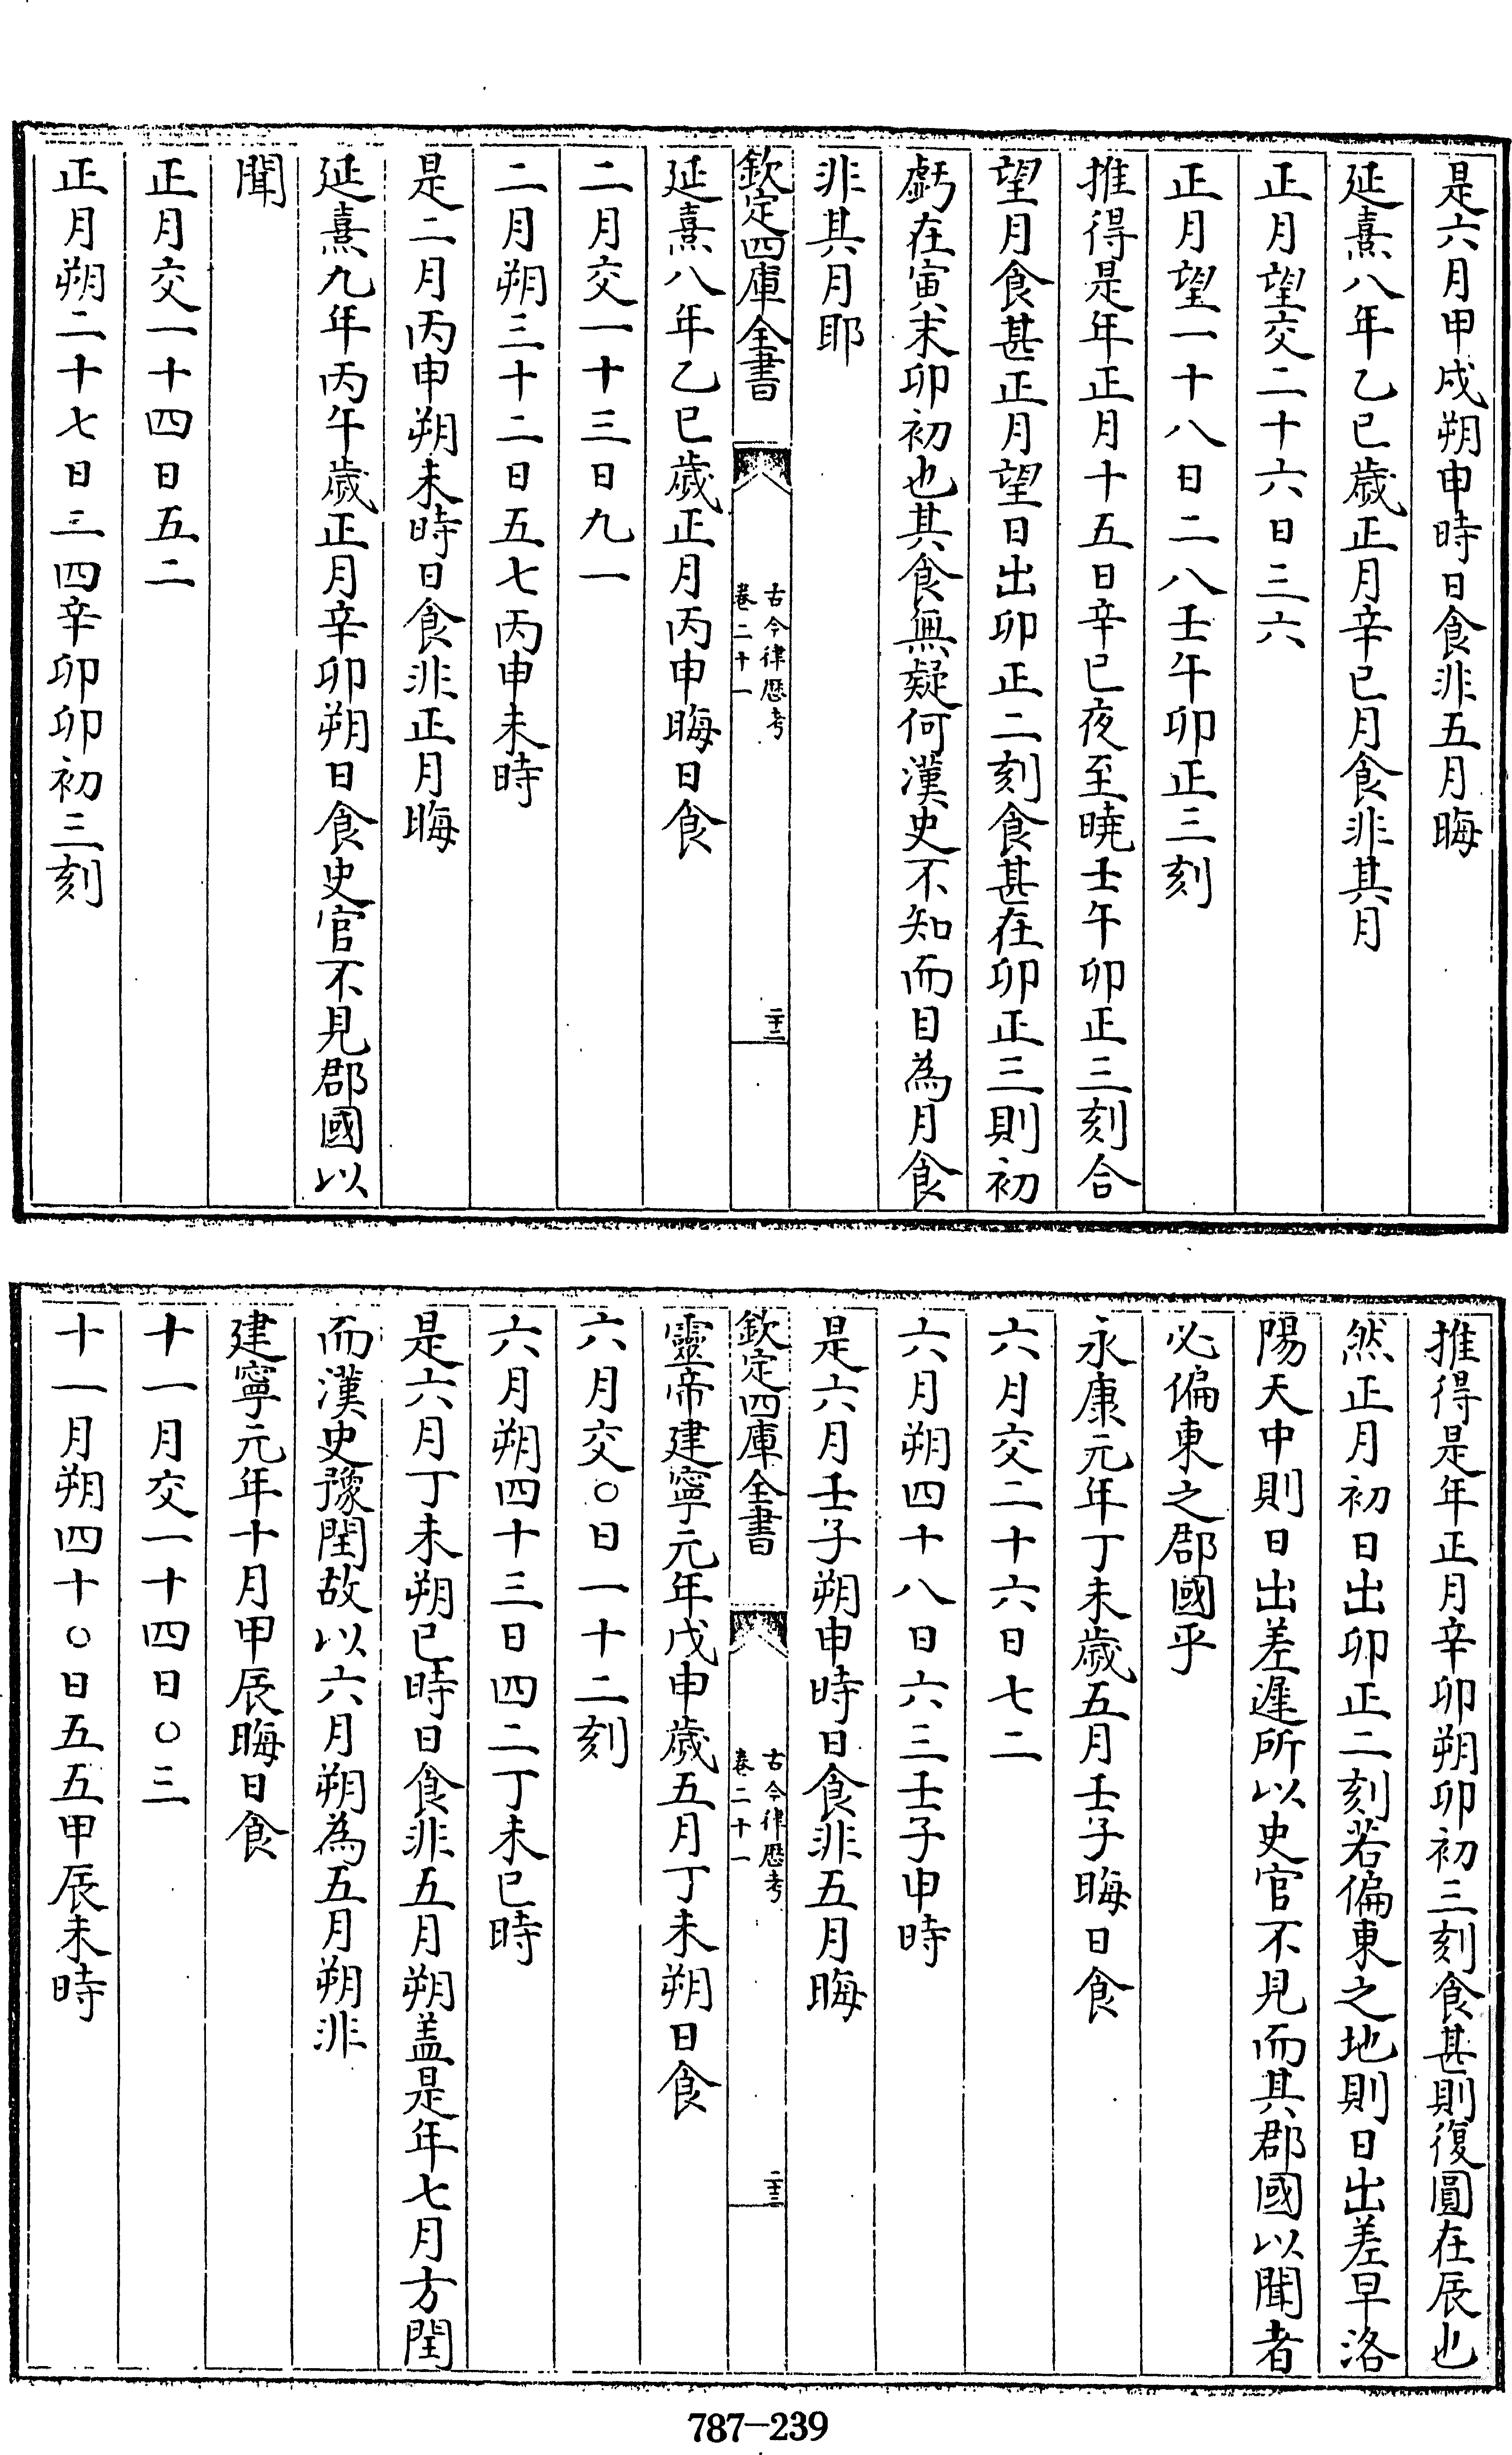 是六月甲戌朔申時日食非五月晦
延熹八年乙巳歲正月辛巳月食非其月
正月望交二十六日三六
正月望一十八日二八壬午卯正三刻
推得是年正月十五日辛巳夜至曉壬午卯正三刻合
望月食甚正月望日出卯正二刻食甚在卯正三則初
虧在寅末卯初也其食無疑何漢史不知而目為月食
非其月耶
欽定四庫全書
古今律歷考
卷二十一
二十二
延熹八年乙巳歲正月丙申晦日食
二月交一十三日九一
二月朔三十二日五七丙申未時
是二月丙申朔未時日食非正月晦
延熹九年丙午歲正月辛卯朔日食史官不見郡國以
聞
正月交一十四日五二
正月朔二十七日三四辛卯卯初三刻
推得是年正月辛卯朔卯初三刻食甚則復圓在辰也
然正月初日出卯正二刻若偏東之地則日出差早洛
陽天中則日出差遲所以史官不見而其郡國以聞者
必偏東之郡國乎
永康元年丁未歲五月壬子晦日食
六月交二十六日七二
六月朔四十八日六三壬子申時
是六月壬子朔申時日食非五月晦
欽定四庫全書
古今律歷考
卷二十一
二十三
靈帝建寧元年戊申歲五月丁未朔日食
六月交〇日一十二刻
六月朔四十三日四二丁未巳時
是六月丁未朔巳時日食非五月朔盖是年七月方閏
而漢史豫閏故以六月朔為五月朔非
建寧元年十月甲辰晦日食
十一月交一十四日〇三
十一月朔四十〇日五五甲辰未時
787-239